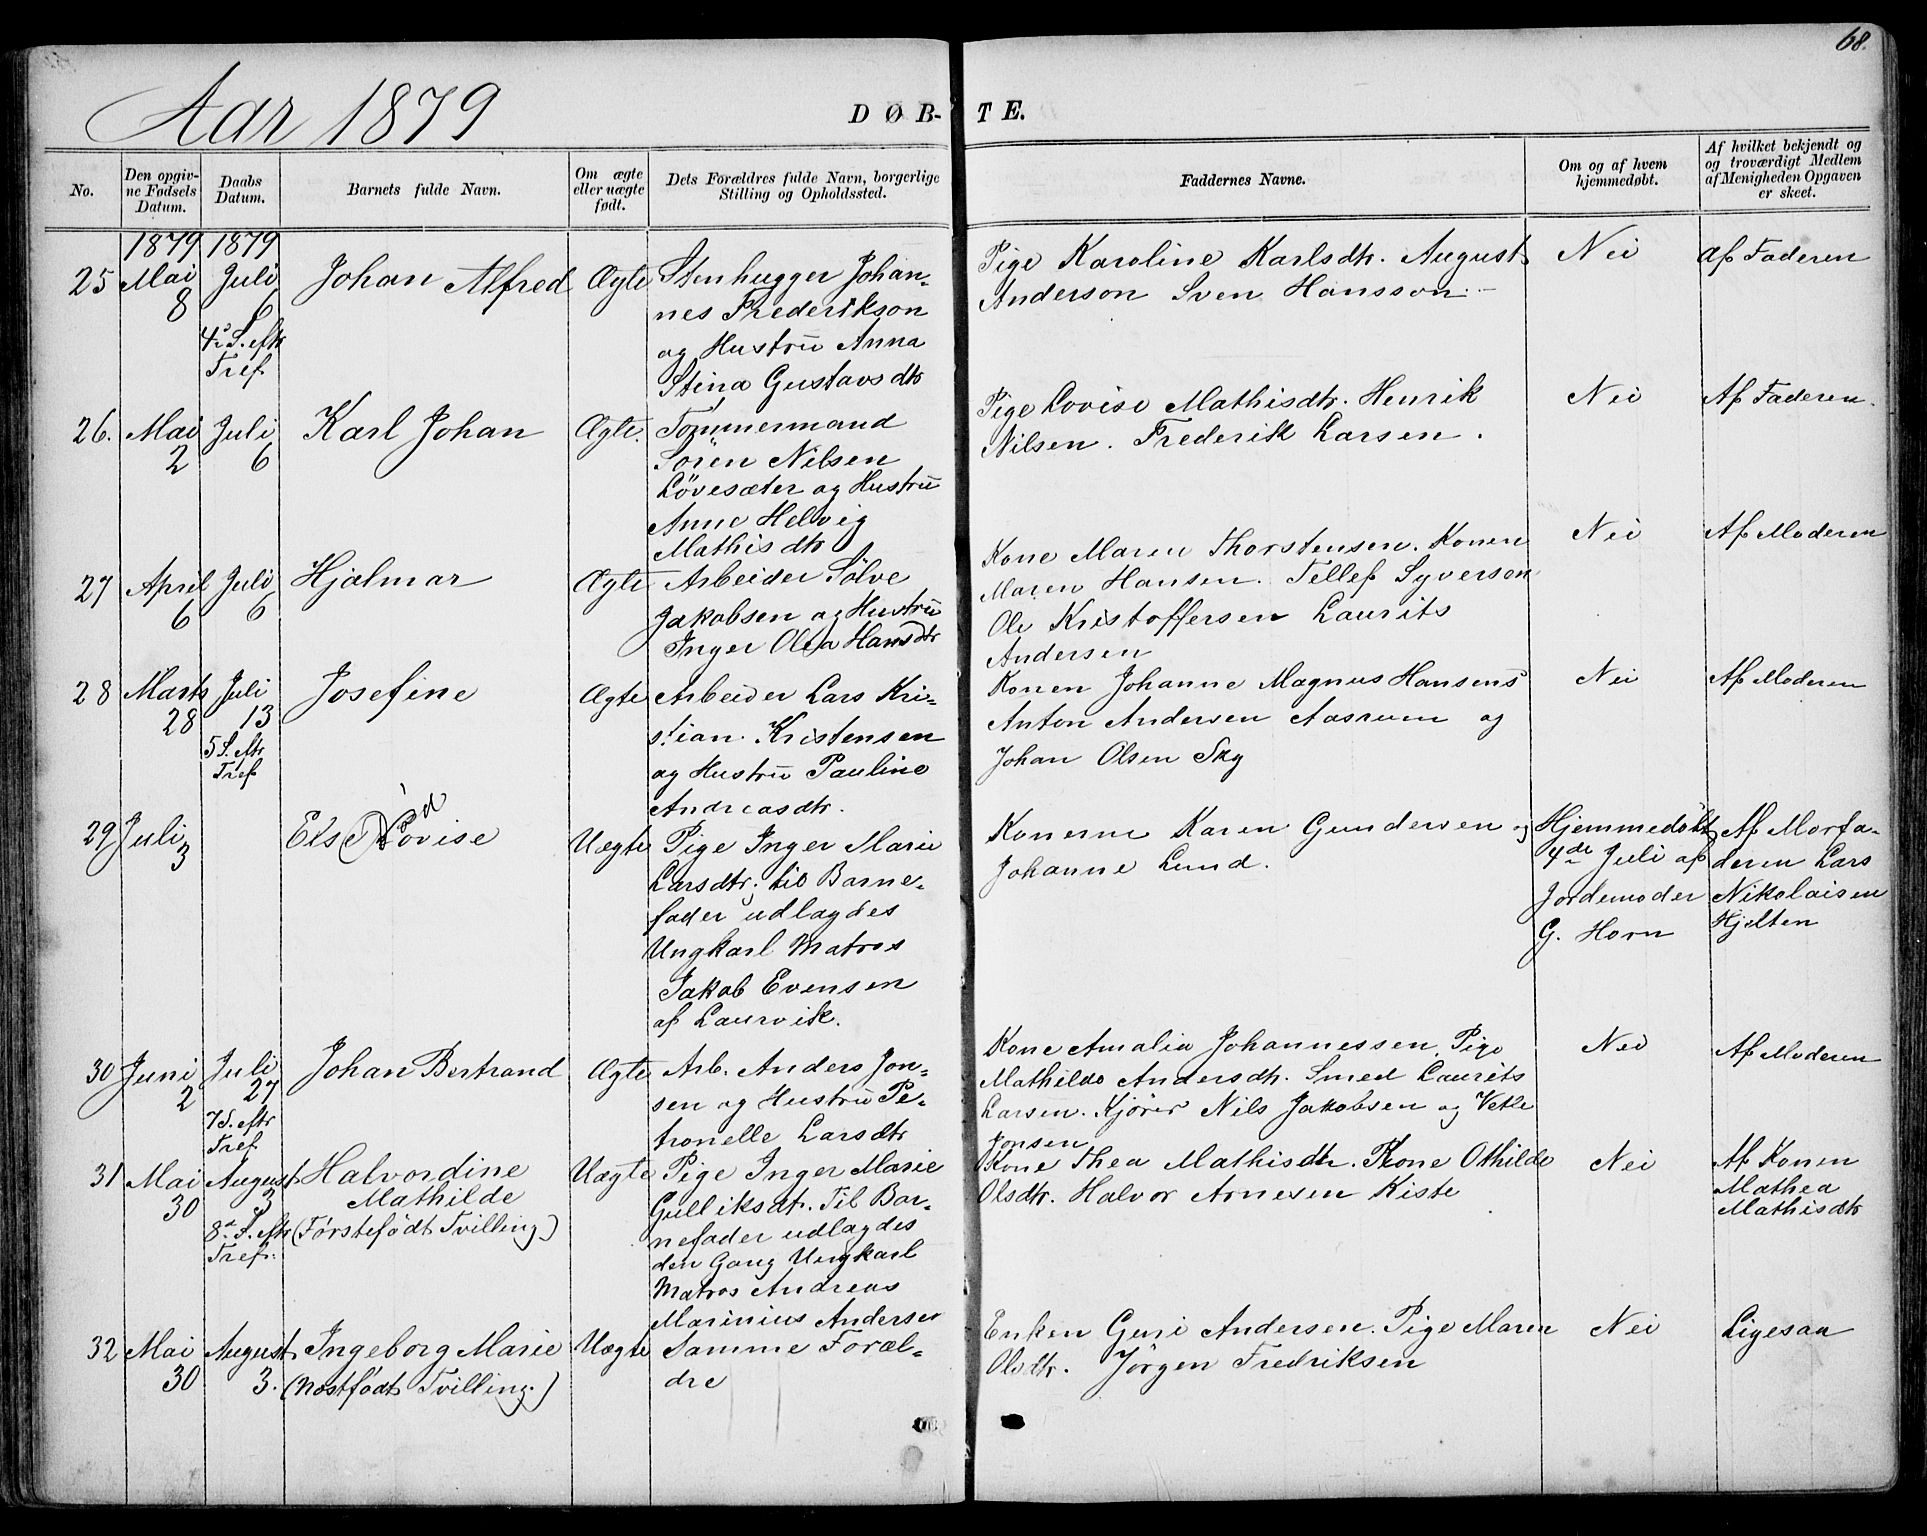 68.
Aar 1879
DØB-TE.
No.
Den opgiv-
ne Fødsels
Datum.
Daabs
Datum.
Barnets fulde Navn.
Om ægte
eller uægte
født.
Dets Forældres fulde Navn, borgerlige
Stilling og Opholdssted.
Faddernes Navne.
Om og af hvem
hjemmedøbt.
Af hvilket bekjendt og
og troværdigt Medlem
af Menigheden Opgaven
er skeet.
1879 1879
25
Mai
8
Juli
6
4de S. eftr
Tref
Johan Alfred
Ægte
Stenhugger Johan-
nes Frederikson
og Hustru Anna
Stina Gustavsdtr
Pige Karoline Karlsdtr. August
Anderson Sven Hansson.
Nei
Af Faderen
26.
Mai
2
Juli
6
Karl Johan
Ægte.
Tømmermand
Sören Nilsen
Lövesæter og Hustru
Anne Helvig
Mathisdtr
Pige Lovise Mathisdtr. Henrik
Nilsen. Frederik Larsen.
Nei
Af Faderen.
27
April
6
Juli
6
Hjalmar
Ægte
Arbeider Sölve
Jakobsen og Hustru
Inger Olea Hansdtr
Kone Maren Thorstensen. Konen
Maren Hansen. Tellef Syversen
Ole Kristoffersen Laurits
Andersen
Nei
Af Moderen
28
Marts
28
Juli
13
5 S. eftr
Tref
Josefine
Ægte
Arbeider Lars Kri-
stian Kristensen
og Hustru Pauline
Andreasdtr.
Konen Johanne Magnus Hansens
Anton Andersen Aasrum og
Johan Olsen Sky
Nei
Af Moderen
29
Juli
3
Else Lovise
Död
Uægte
Pige Inger Marie
Larsdtr; til Barne-
fader udlagdes
Ungkarl Matros
Jakob Evensen
af Laurvik.
Konerne Karen Gundersen og
Johanne Lund.
Hjemmedøbt
4de Juli af
Jordemoder
G. Horn
Af Morfa-
deren Lars
Nikolaisen
Hjelten
30
Juni
2
Juli
27
7 S. eftr
Tref
Johan Bertrand
Ægte
Arb. Anders Jon-
sen og Hustru Pe-
tronelle Larsdtr
Kone Amalia Johannessen. Pige
Mathilde Andersdtr. Smed Laurits
Larsen. Kjörer Nils Jakobsen og Vetle
Jonsen
Nei
Af Moderen
31
Mai
30
August
3
8de S. eftr
Tref.
Halvordine
Mathilde
(Førstefödt Tvilling.)
Uægte
Pige Inger Marie
Gulliksdt. Til Bar-
nefader udlagdes
den Gang Ungkarl
Matros Andreas
Marinius Andersen
Kone Thea Mathisdtr. Kone Othilde
Olsdtr. Halvor Arnesen Kiste
Nei
Af Konen
Mathea
Mathisdtr
32
Mai
30
August
3.
Ingeborg Marie
(Næstfödt Tvilling.)
Uægte
Samme Foræl-
dre
Enken Guri Andersen. Pige Maren
Olsdtr. Jörgen Fredriksen
Nei
Ligesaa